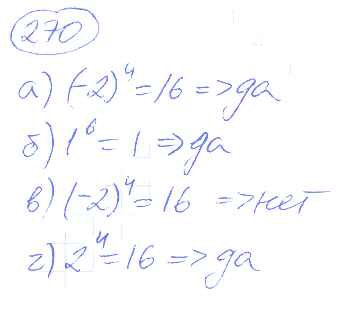 270
а) (-2)⁴ = 16 => да
б) 1⁶ = 1 => да
в) (-2)⁴ = 16 => нет
г) 2⁴ = 16 => да